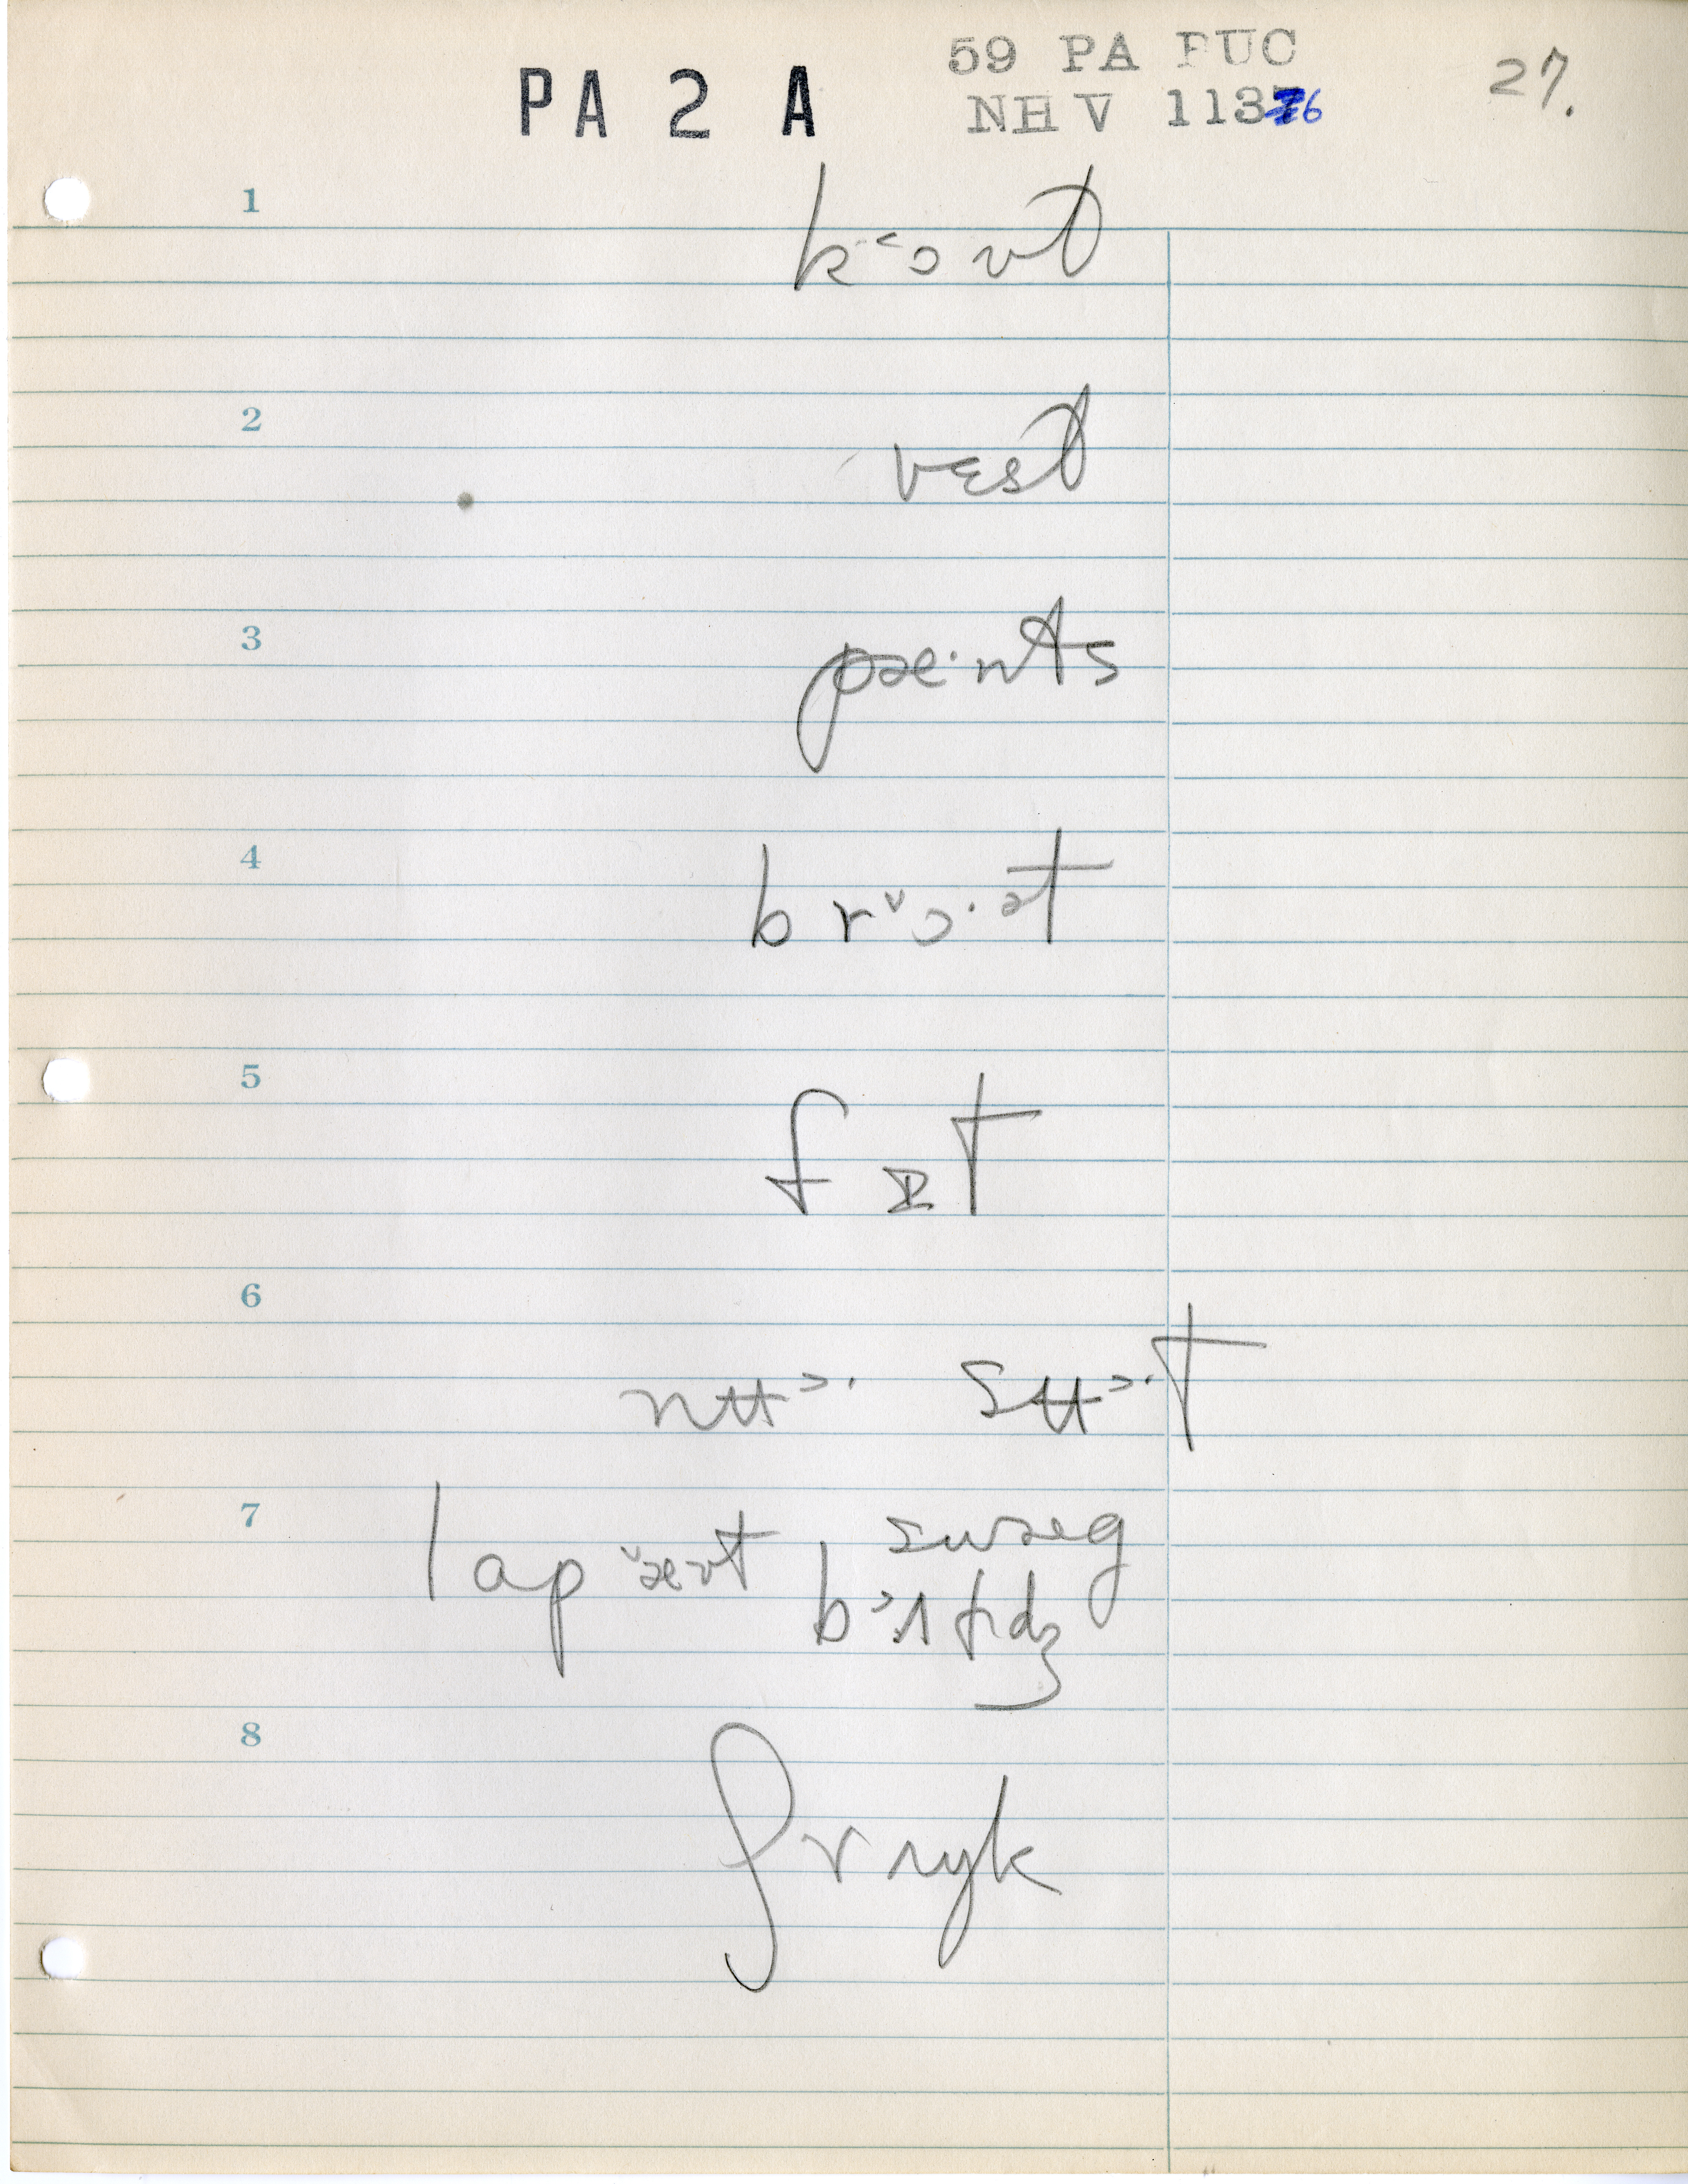 PA 2 A
59 PA PUC
NH V 1136
27.
1
k˂ɔvt
2
vɛst
3
pæ·nts
4
br˅ɔ·ət
5
fɪt
6
nʉ˃· sʉ˃·t
7
lap˅ævt swæg
b˃ʌɫɪdʒ
8
ʃrɪŋk